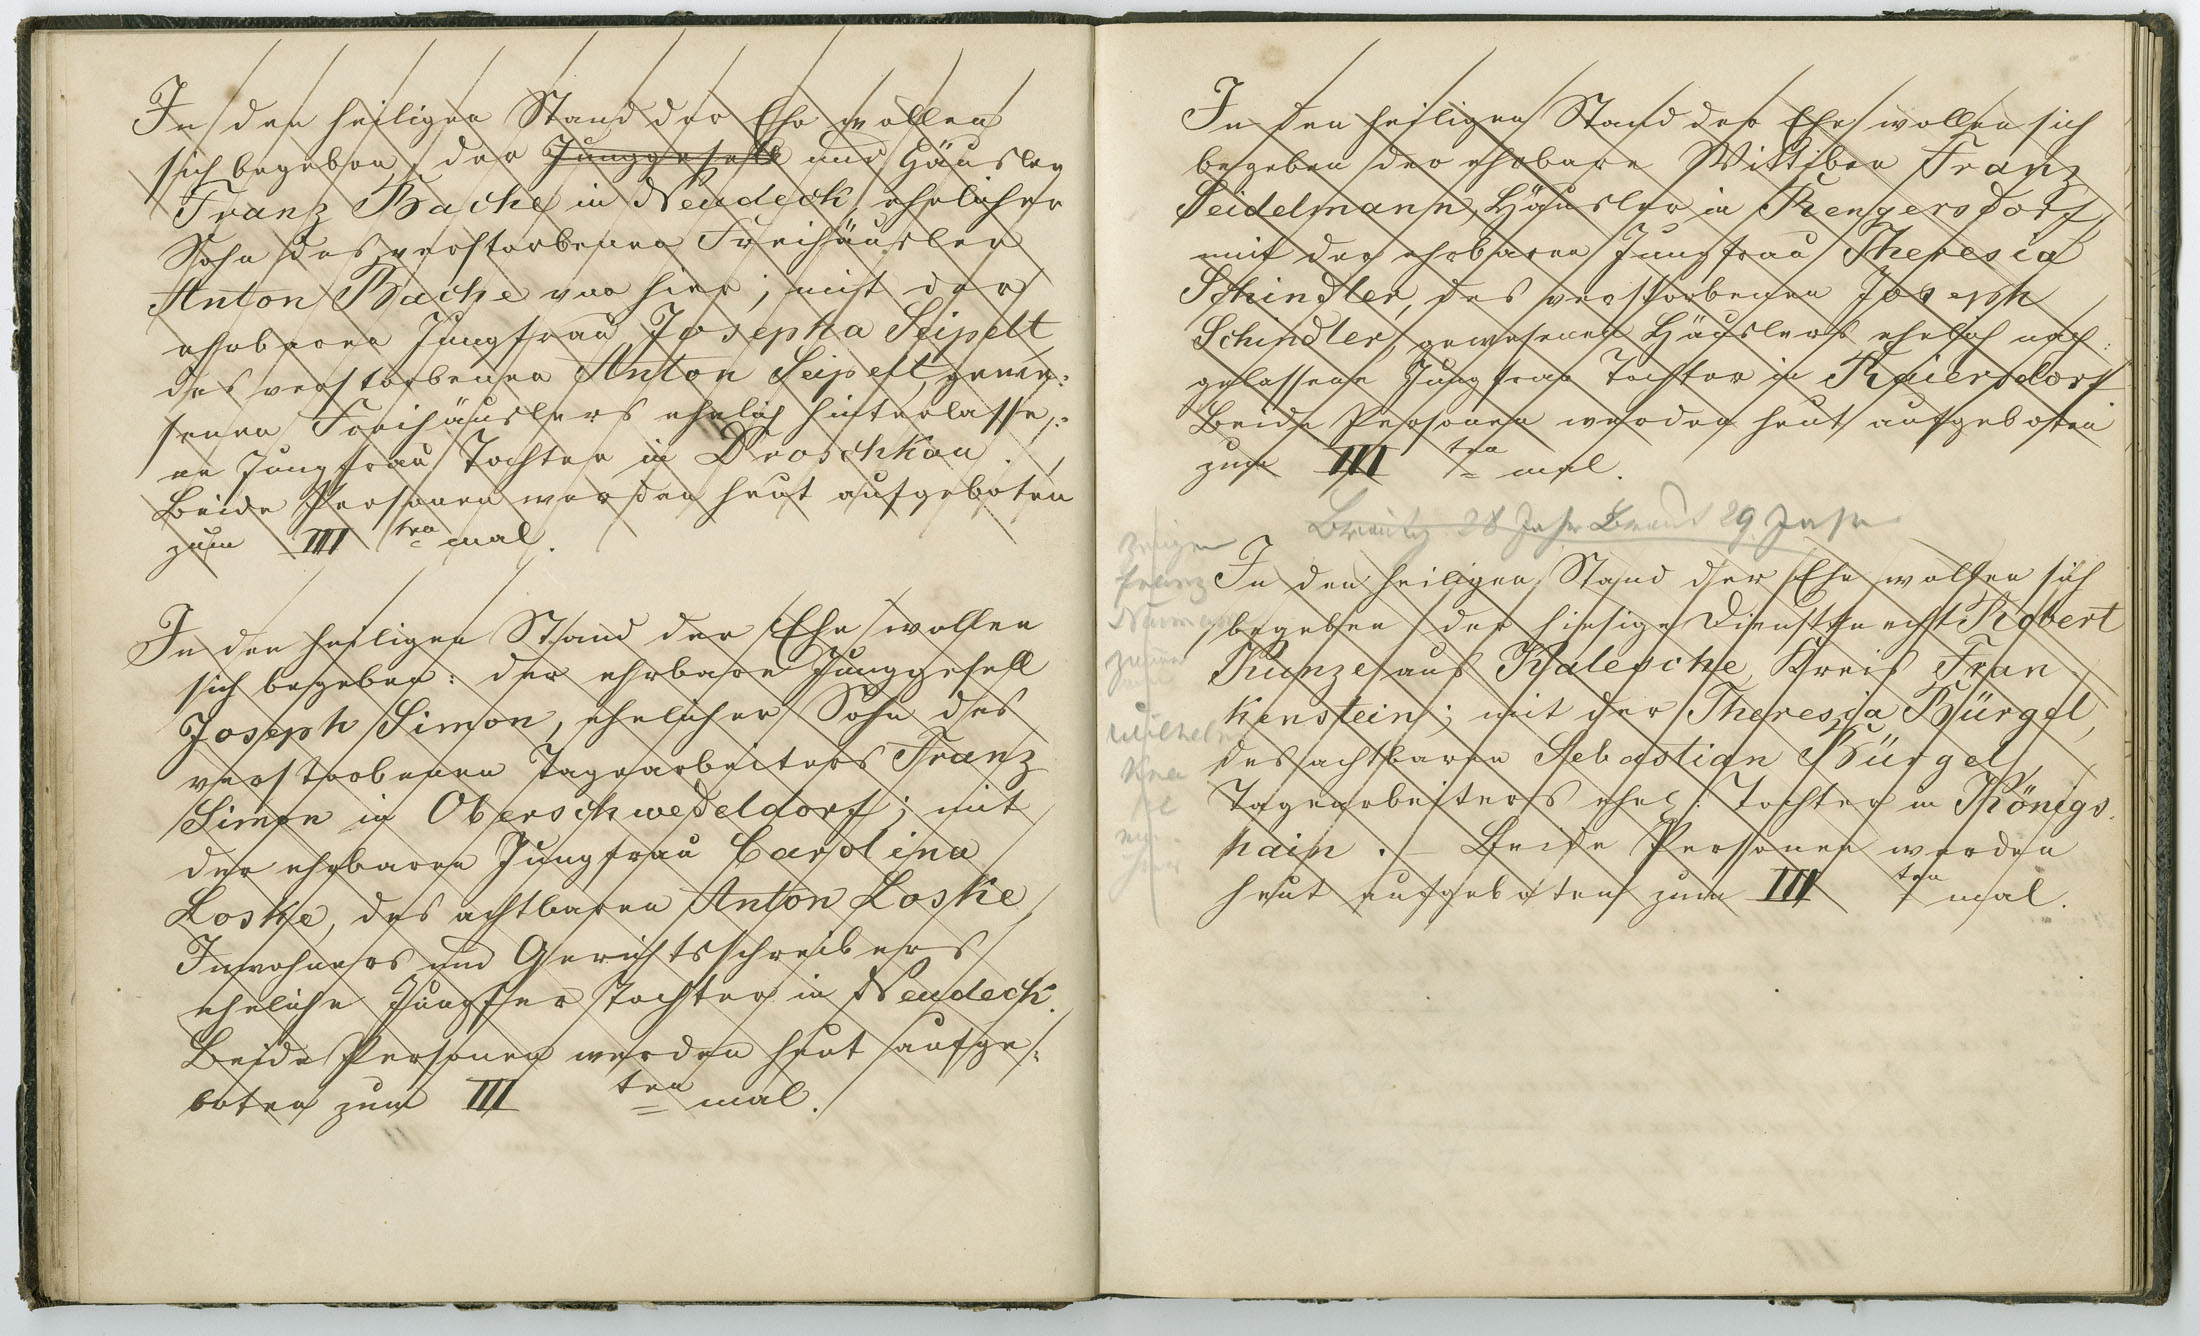 In den heiligen Stand der Ehe wollen
sich begeben, der Junggesell und Häusler
Franz Bache in Neudeck, ehelicher
Sohn des verstorbenen Freihäusler
Anton Bache von hier; mit der
ehrbaren Jungfrau Josepha Seipelt,
des verstorbenen Anton Seipelt, gewe-
senen Freihäuslers ehelich hinterlasse-
ne Jungfrau Tochter in Droschkau.
Beide Personen werden heut aufgeboten
zum III ten mal.
In den heiligen Stand der Ehe wollen
sich begeben: der ehrbare Junggesell
Joseph Simon, ehelicher Sohn des
verstorbenen Tagearbeiters Franz
Simon in Oberschwedeldorf; mit
der ehrbaren Jungfrau Carolina
Loske, des achtbaren Anton Loske,
Inwohners und Gerichtsschreibers
eheliche Jungfer Tochter in Neudeck.
Beide Personen werden heut aufge-
boten zum III ten mal.
In den heiligen Stand der Ehe wollen sich
begeben der ehrbare Wittiber Franz
Seidelmann, Häusler in Rengersdorf,
mit der ehrbaren Jungfrau Theresia
Schindler, des verstorbenen Joseph
Schindler, gewesenen Häuslers ehelich nach-
gelassene Jungfrau Tochter in Raiersdorf
Beide Personen werden heut aufgeboten
zum III ten mal.
28 Jahr Braut 29 Jahr
Zeugen
Franz
In den heiligen Stand der Ehe wollen sich
begeben der hiesige Dienstknecht Robert
Kunze aus Kalesche, Kreis Fran
kenstein; mit der Theresia Bürgel,
Wilhelm
des achtbaren Sebastian Bürgel,
Tagearbeiters ehel: Tochter in Königs-
hain. — Beide Personen werden
heut aufgeboten zum III ten mal.